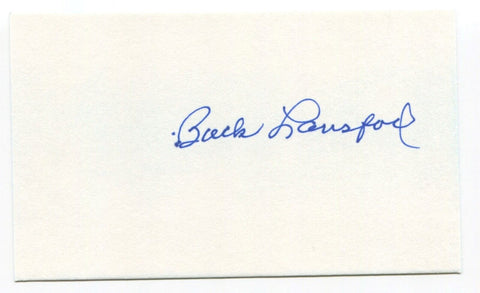 Buck Lansford